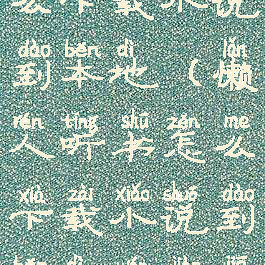 么下载小说
dào běn dì lǎn
到本地(懒
rén tīng shū zěn me
人听书怎么
xià zài xiǎo shuō dào
下载小说到